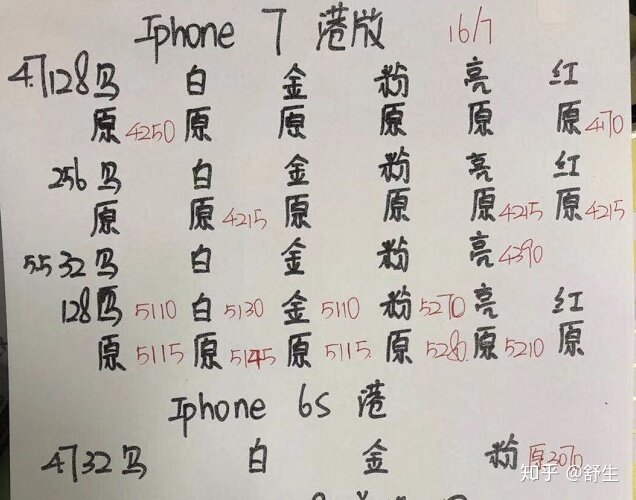 Iphone 7 港版 16/7
4.7 128 马 白 金 粉 亮 红
原 4250 原 原 原 原 原 4170
256 马 白 金 粉 亮 红
原 原 4215 原 原 原 4215 原 4215
5.5 32 马 白 金 粉 亮 4390
128 马 5110 白 5130 金 5110 粉 5270 亮 红
原 5115 原 5145 原 5115 原 5280 原 5210 原
Iphone 6s 港
4.7 32 马 白 金 粉 原 2070
知乎 @舒生